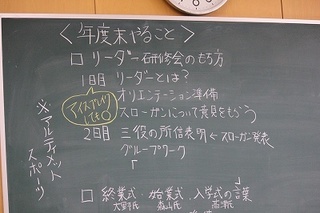 ＜年度末やること＞
□ リーダー研修会のもち方
1日目 リーダーとは?
アイスブレイク
オリエンテーション準備
スローガンについて意見をもらう
2日目 三役の所信表明 ← スローガン発表
グループワーク
※アルティメット
スポーツ
□ 終業式・始業式・入学式の言葉